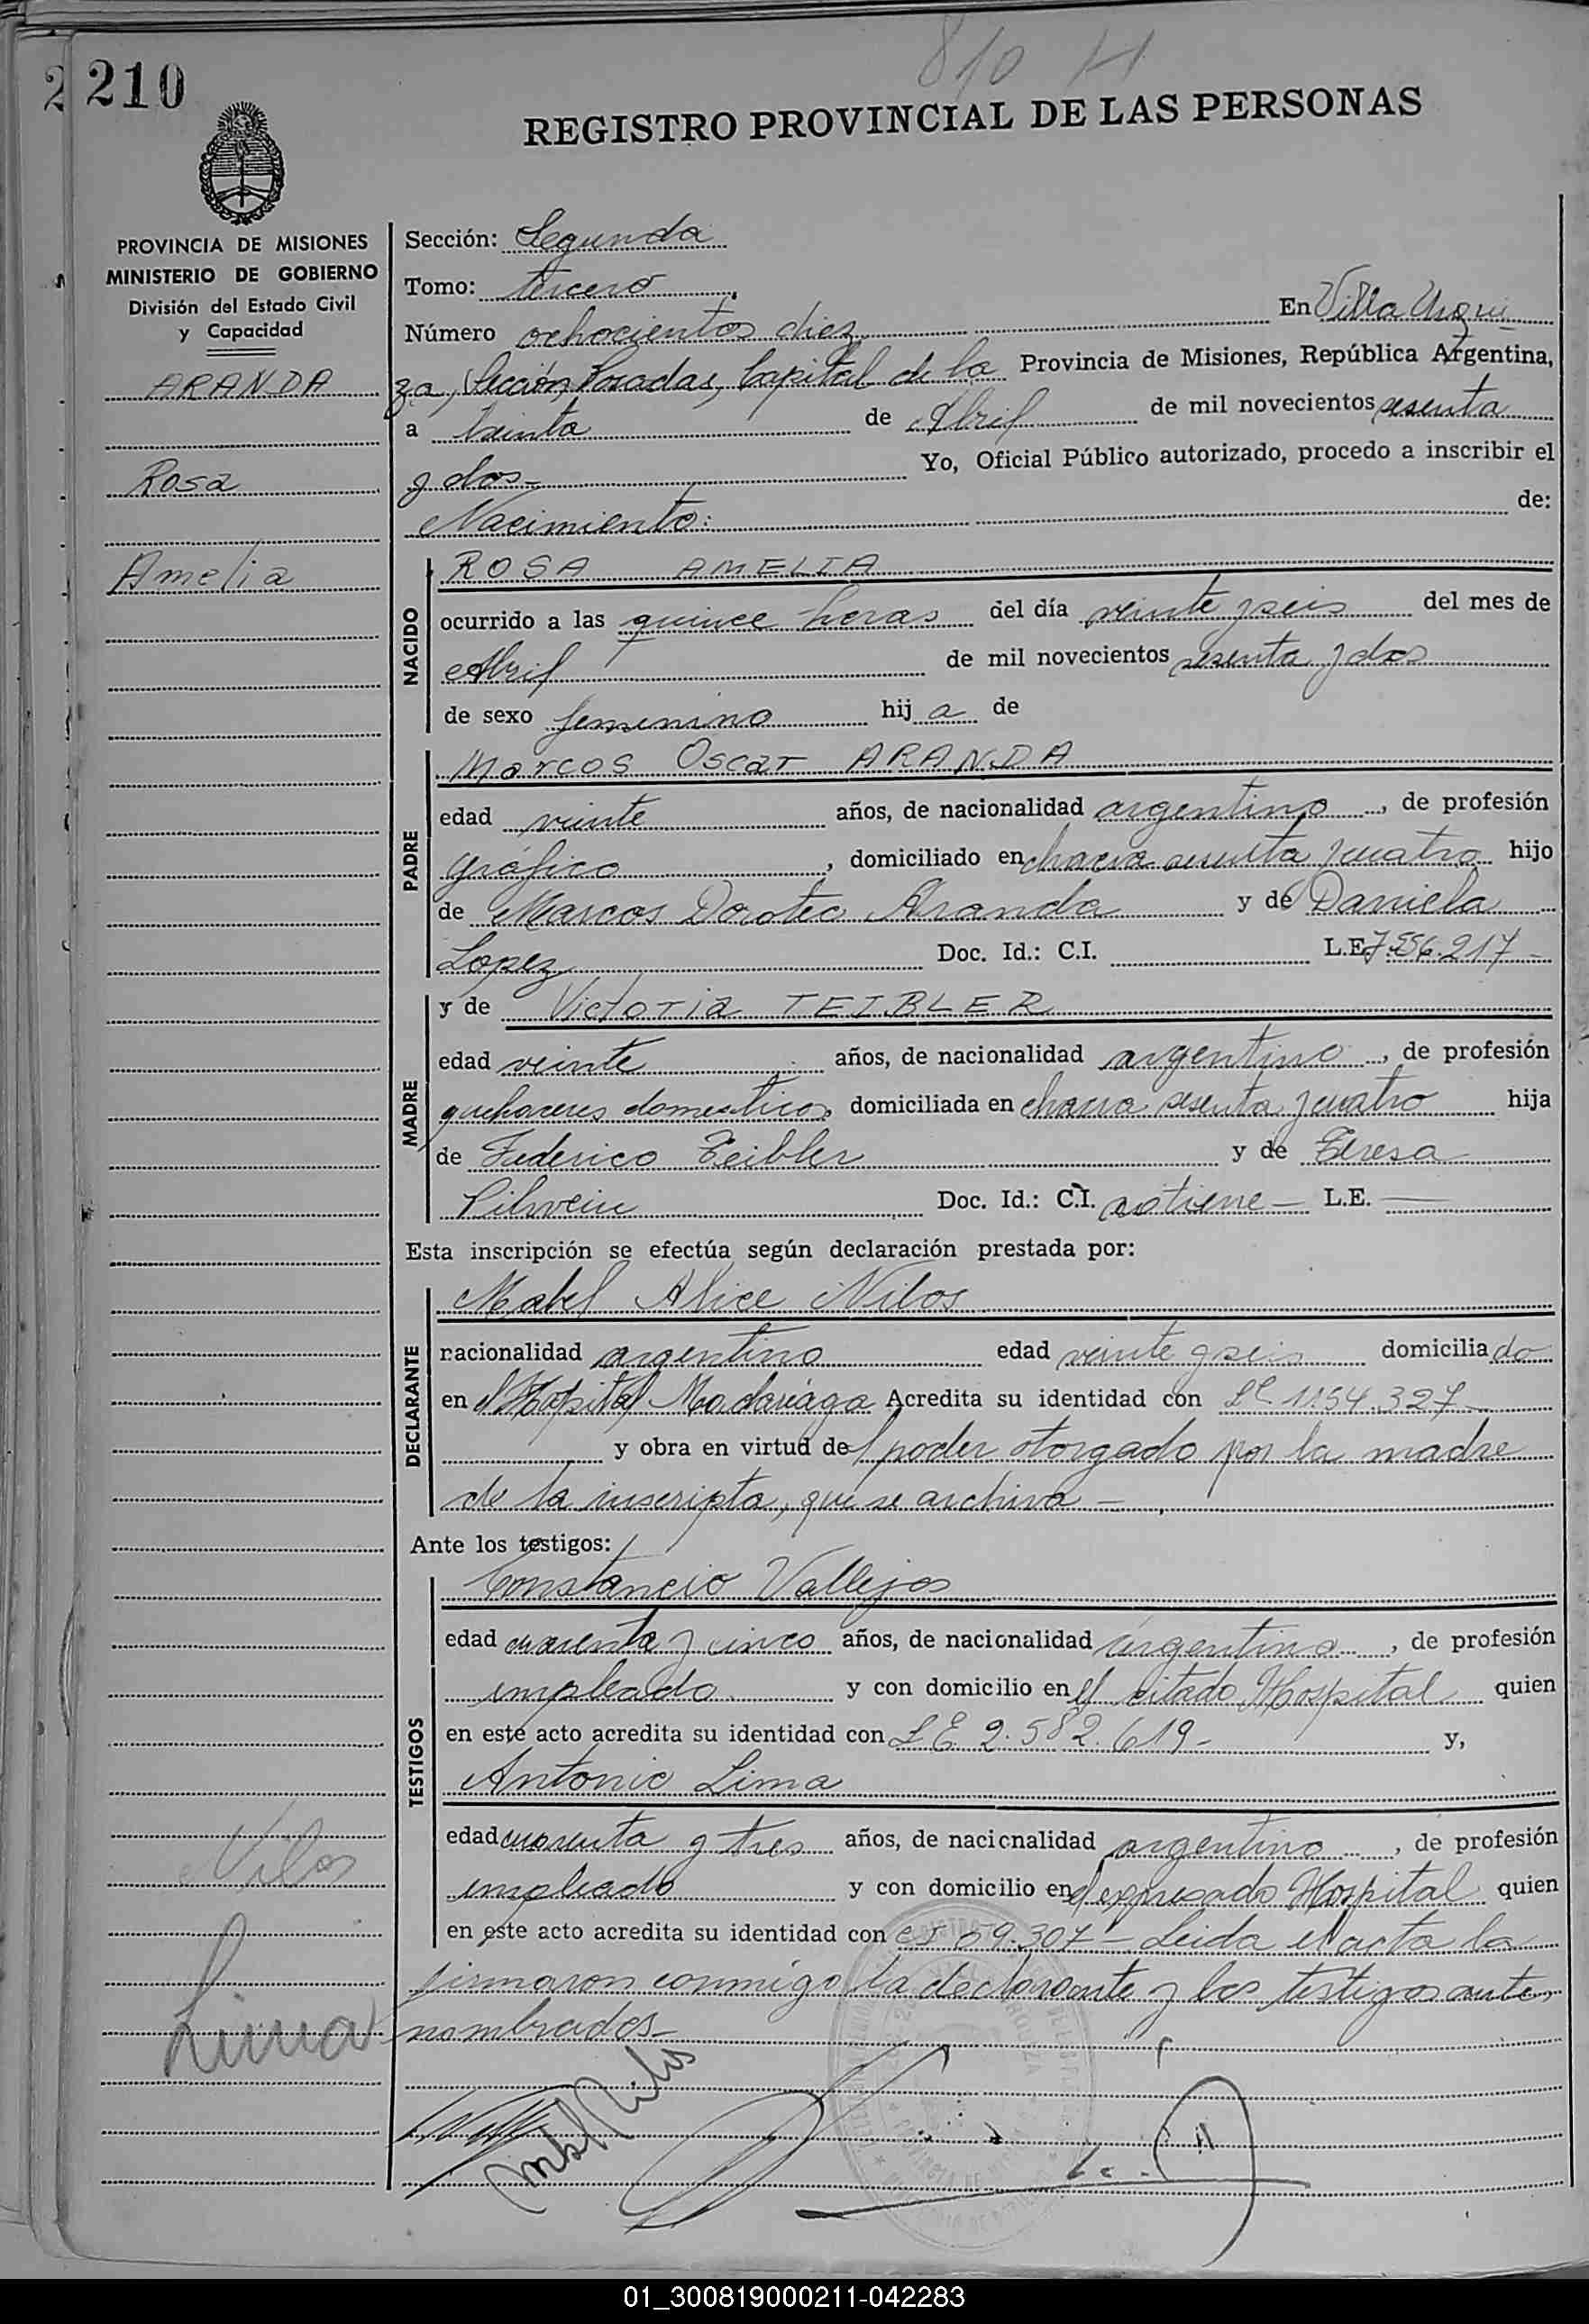 810 H
210
REGISTRO PROVINCIAL DE LAS PERSONAS
PROVINCIA DE MISIONES
MINISTERIO DE GOBIERNO
División del Estado Civil
y Capacidad
ARANDA
Rosa
Amelia
Sección: Segunda
Tomo: tercero
Número ochocientos diez En Villa Urqui
za, Sección Posadas, Capital de la Provincia de Misiones, República Argentina,
a treinta de Abril de mil novecientos sesenta
y dos.- Yo, Oficial Público autorizado, procedo a inscribir el
Nacimiento: de:
NACIDO
ROSA AMELIA
ocurrido a las quince horas del día veinte y seis del mes de
Abril de mil novecientos sesenta y dos
de sexo femenino hij a de
PADRE
Marcos Oscar ARANDA
edad veinte años, de nacionalidad argentino, de profesión
gráfico, domiciliado en chacra sesenta y cuatro hijo
de Marcos Doroteo Aranda y de Daniela
Lopez Doc. Id.: C.I. L.E. 7.556.217-
MADRE
y de Victoria TEIBLER
edad veinte años, de nacionalidad argentino, de profesión
quehaceres domesticos domiciliada en chacra sesenta y cuatro hija
de Federico Teibler y de Teresa
Doc. Id.: C.I. no tiene - L.E. —
Esta inscripción se efectúa según declaración prestada por:
DECLARANTE
Mabel Alice Nilos
nacionalidad argentino edad veinte y seis domiciliado
en el Hospital Madariaga Acredita su identidad con LC 1.154.327-
y obra en virtud del poder otorgado por la madre
de la inscripta, que se archiva -
Ante los testigos:
TESTIGOS
Constancio Vallejos
edad cuarenta y cinco años, de nacionalidad argentino, de profesión
empleado y con domicilio en el citado Hospital quien
en este acto acredita su identidad con LE 2.582.619- y,
Antonio Lima
edad cuarenta y tres años, de nacicnalidad argentino, de profesión
empleado y con domicilio en el expresado Hospital quien
en este acto acredita su identidad con CI 09.307- Leida el acta la
firmaron conmigo la declarante y los testigos ante,
nombrados-
Nilos
Lima
01_300819000211-042283